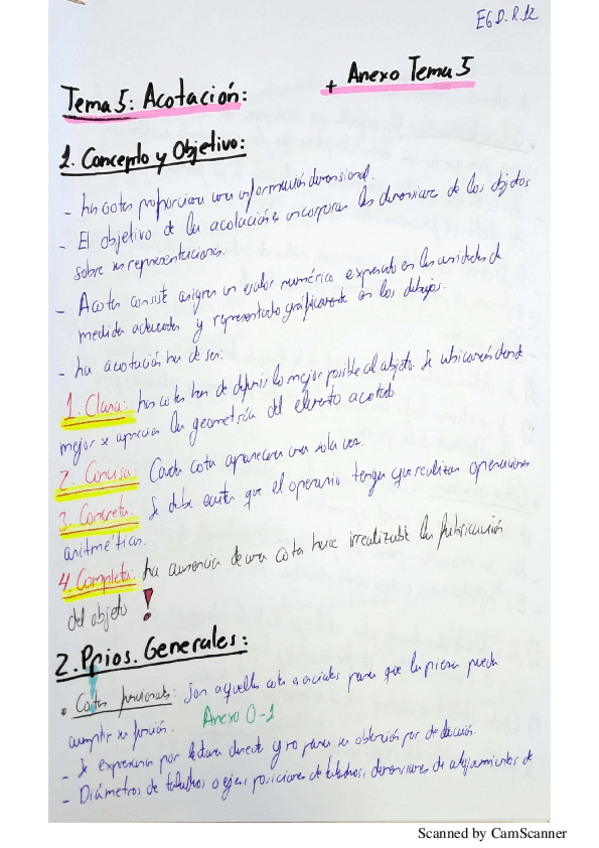 EGD.R.12
+ Anexo Tema 5
Tema 5: Acotación:
1. Concepto y Objetivo:
- Las cotas proporcionan una información dimensional.
- El objetivo de la acotación es incorporar las dimensiones de los objetos
sobre sus representaciones.
- Acotar consiste asignar un valor numérico expresado en las unidades de
medida adecuadas y representado gráficamente en los dibujos.
- La acotación ha de ser:
1. Clara: Las cotas han de definir lo mejor posible al objeto. Se ubicarán donde
mejor se aprecian la geometría del elemento acotado
2. Concisa: Cada cota aparecera una sola vez.
3. Concreta: Se debe evitar que el operario tenga que realizar operaciones
aritméticas.
4. Completa: La ausencia de una cota hace irrealizable la fabricación
del objeto !
2. Ppios. Generales:
• Cotas funcionales: Son aquellas cotas esenciales para que la pieza pueda
cumplir su función. Anexo 0-1
- Se expresaran por lectura directa y no para su obtención por deducción.
- Diámetros de taladros o ejes, posiciones de taladros, dimensiones de alojamientos de
Scanned by CamScanner